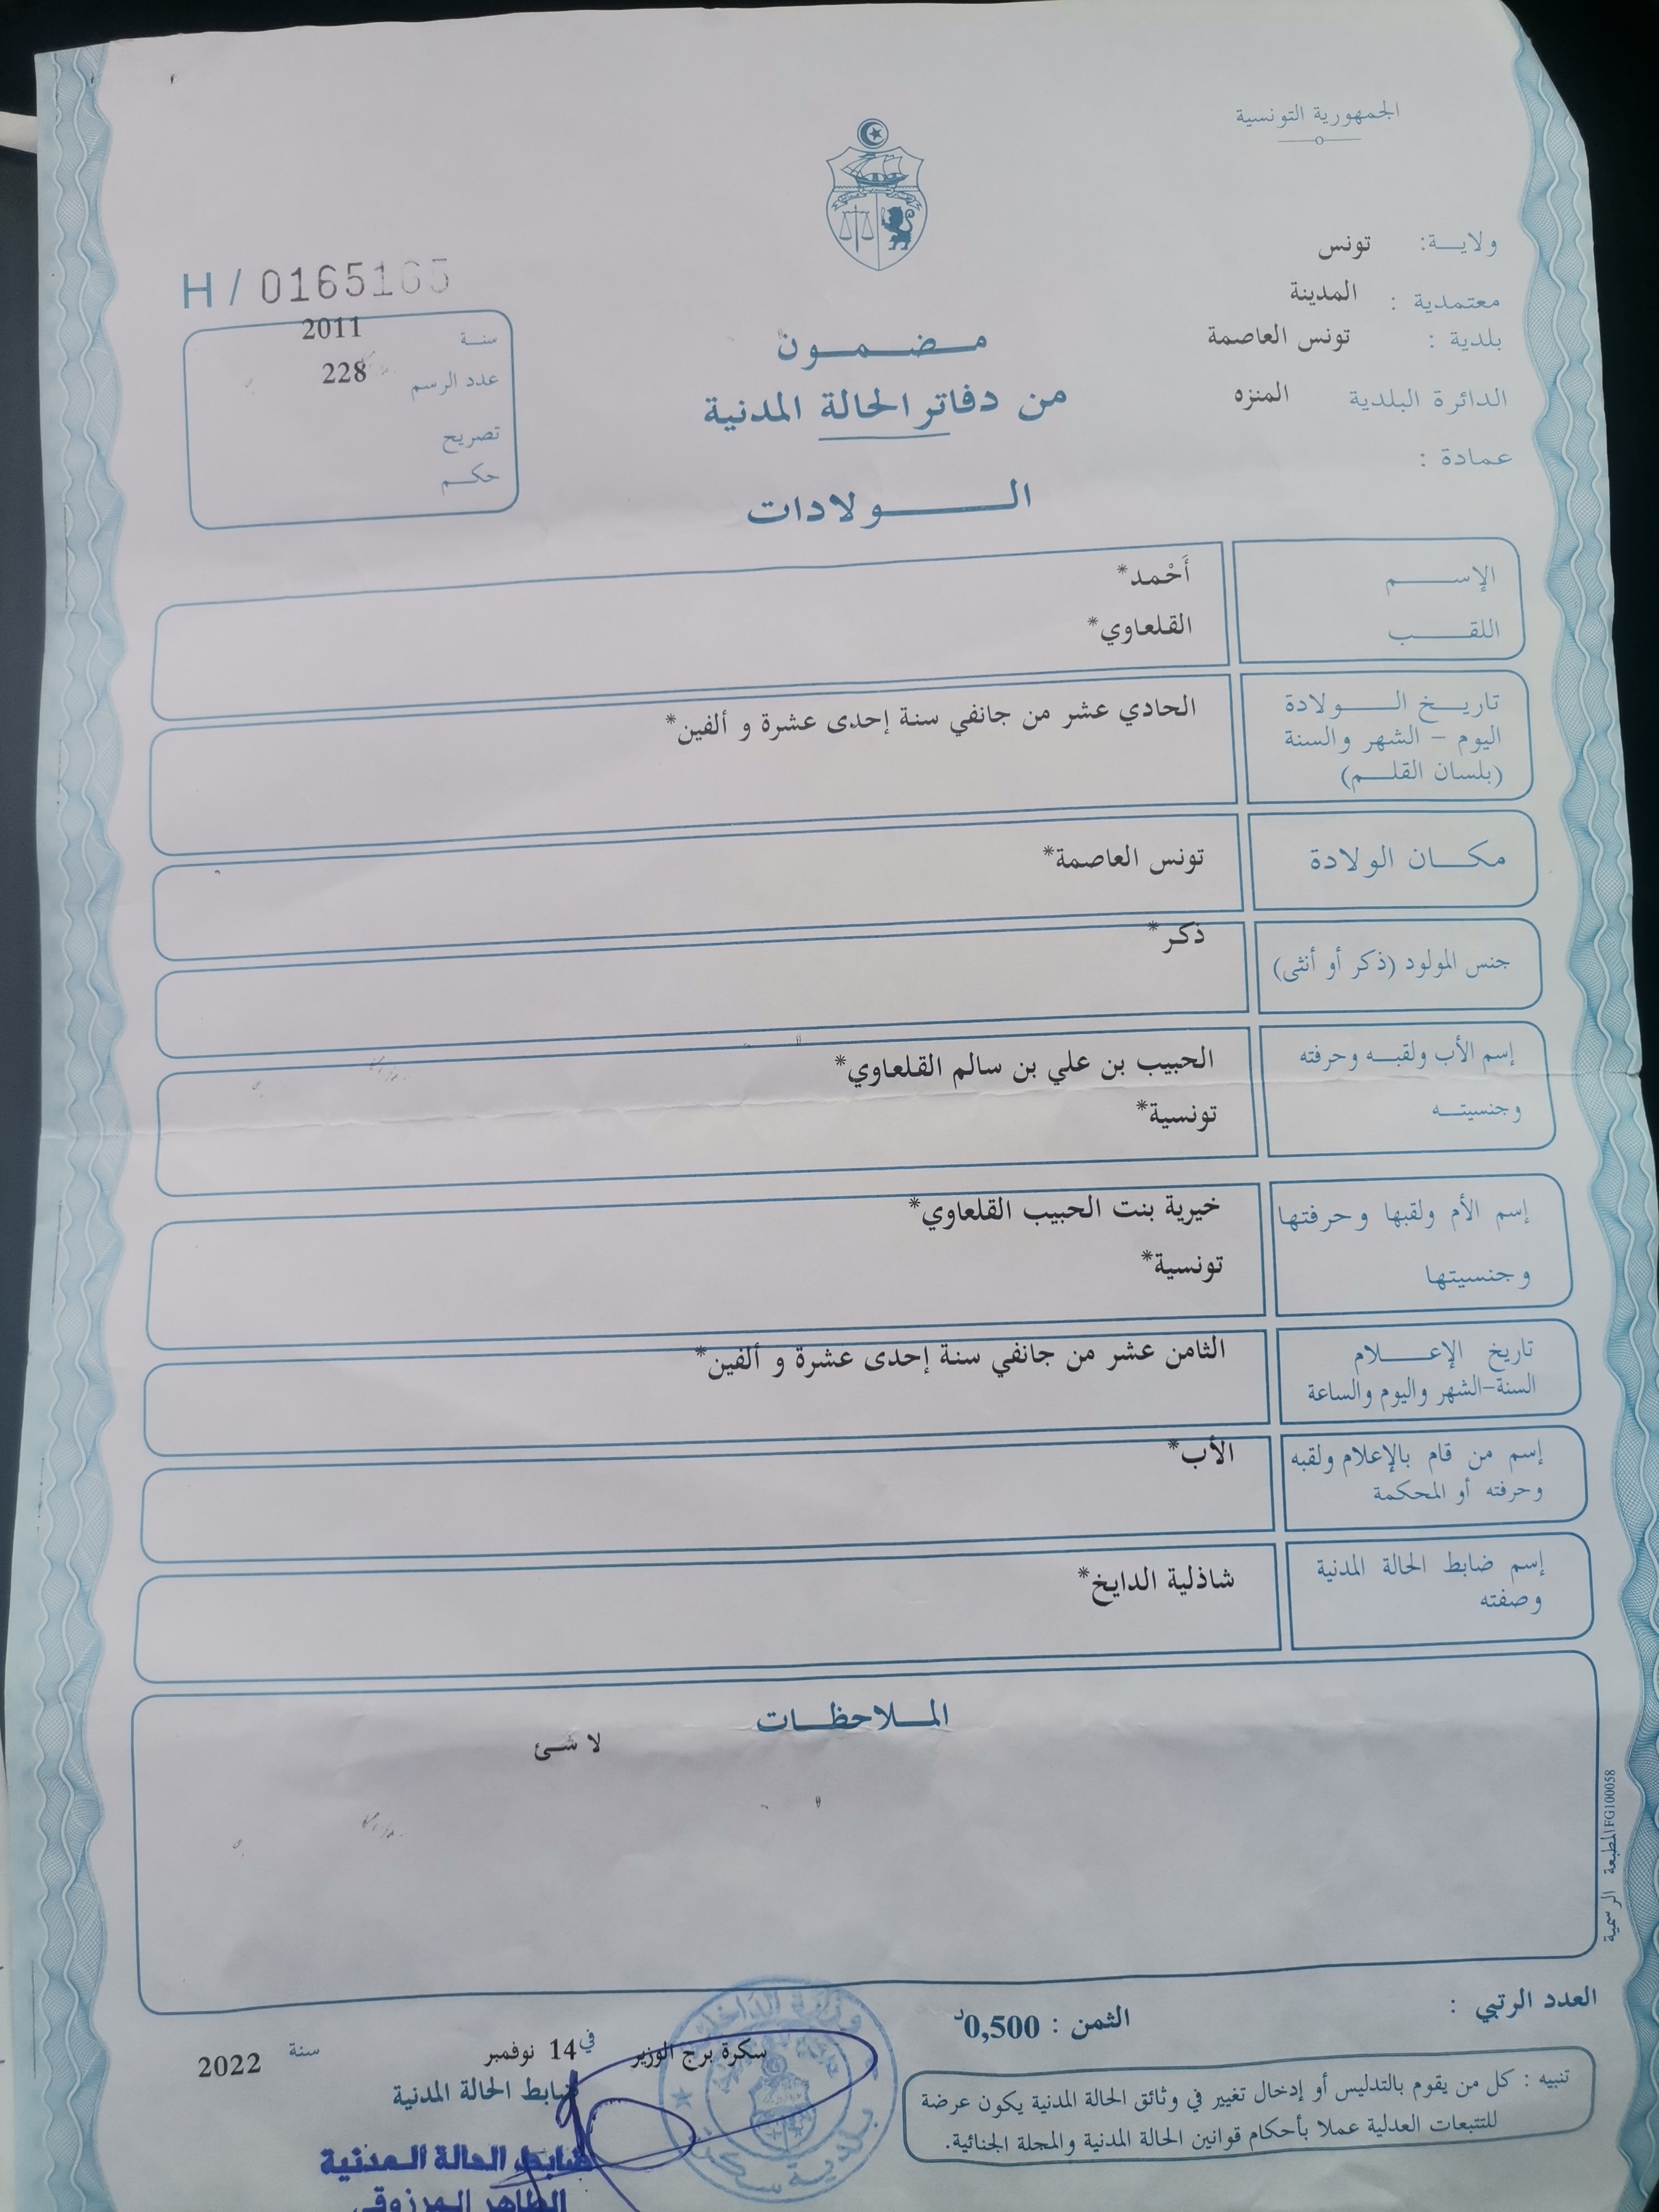 الجمهورية التونسية
ولاية: تونس
معتمدية : المدينة
بلدية : تونس العاصمة
الدائرة البلدية المنزه
عمادة :
H / 0165165
سنة 2011
عدد الرسم 228
تصريح
حكم
مضمون
من دفاتر الحالة المدنية
الولادات
الإسم أَحْمد*
اللقب القلعاوي*
تاريخ الولادة الحادي عشر من جانفي سنة إحدى عشرة و ألفين*
اليوم - الشهر والسنة
(بلسان القلم)
مكان الولادة تونس العاصمة*
جنس المولود (ذكر أو أنثى) ذكر*
إسم الأب ولقبه وحرفته الحبيب بن علي بن سالم القلعاوي*
وجنسيته تونسية*
إسم الأم ولقبها وحرفتها خيرية بنت الحبيب القلعاوي*
وجنسيتها تونسية*
تاريخ الإعلام الثامن عشر من جانفي سنة إحدى عشرة و ألفين*
السنة-الشهر واليوم والساعة
إسم من قام بالإعلام ولقبه الأب*
وحرفته أو المحكمة
إسم ضابط الحالة المدنية شاذلية الدايخ*
وصفته
الملاحظات
لا شئ
المطبعة الرسمية FG100058
العدد الرتبي :
الثمن : 0,500د
سكرة برج الوزير في 14 نوفمبر سنة 2022
ضابط الحالة المدنية
تنبيه : كل من يقوم بالتدليس أو إدخال تغيير في وثائق الحالة المدنية يكون عرضة
للتتبعات العدلية عملا بأحكام قوانين الحالة المدنية والمجلة الجنائية.
ضابط الحالة المدنية
الطاهر المرزوقي
وزارة الداخلية
بلدية سكرة